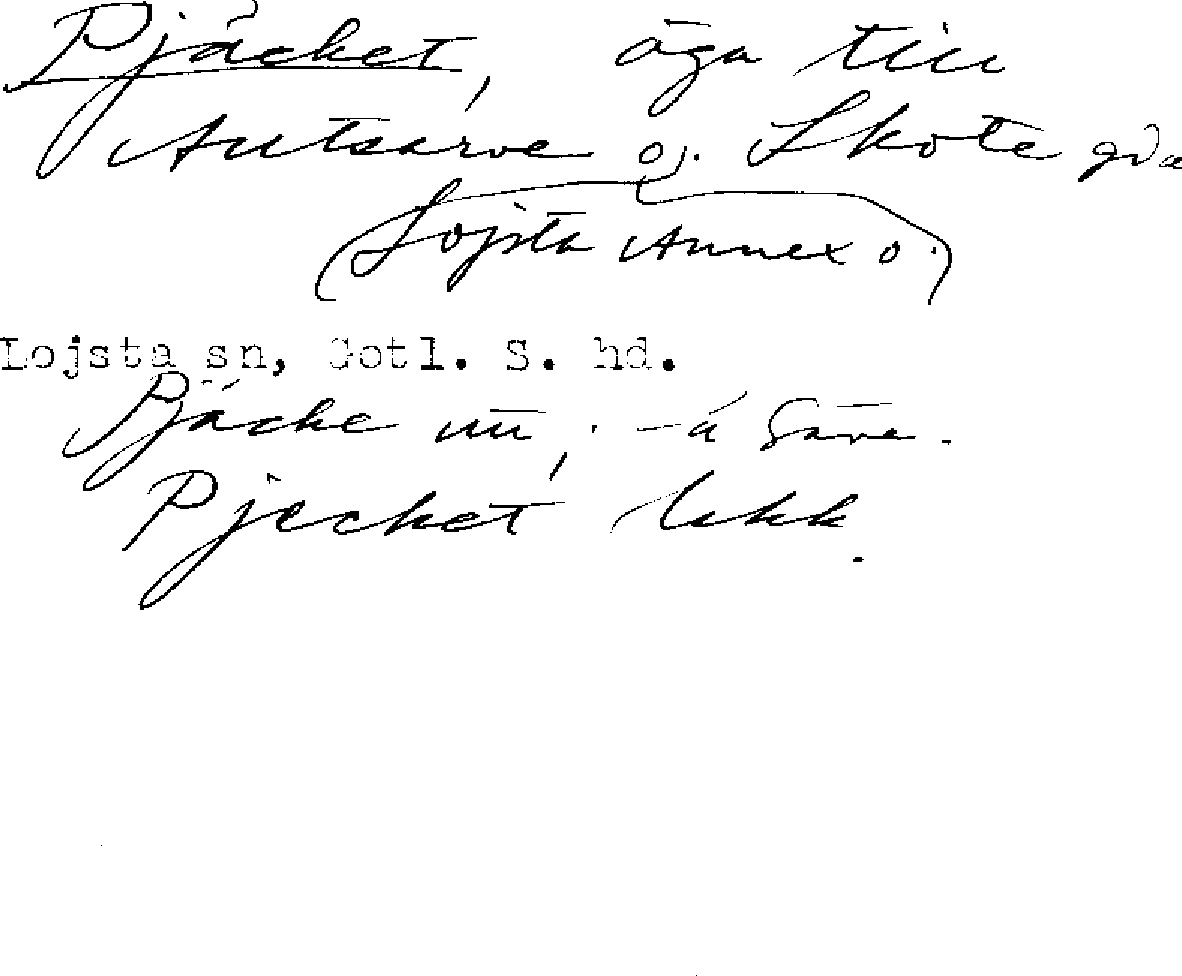 Pjäcket, äga till
Autsarve o. Skote gda
(Lojsta Annex o.)
Lojsta sn, Gotl. S. hd.
Pjäcke nu, -ä Säve.
Pjecket lekk.